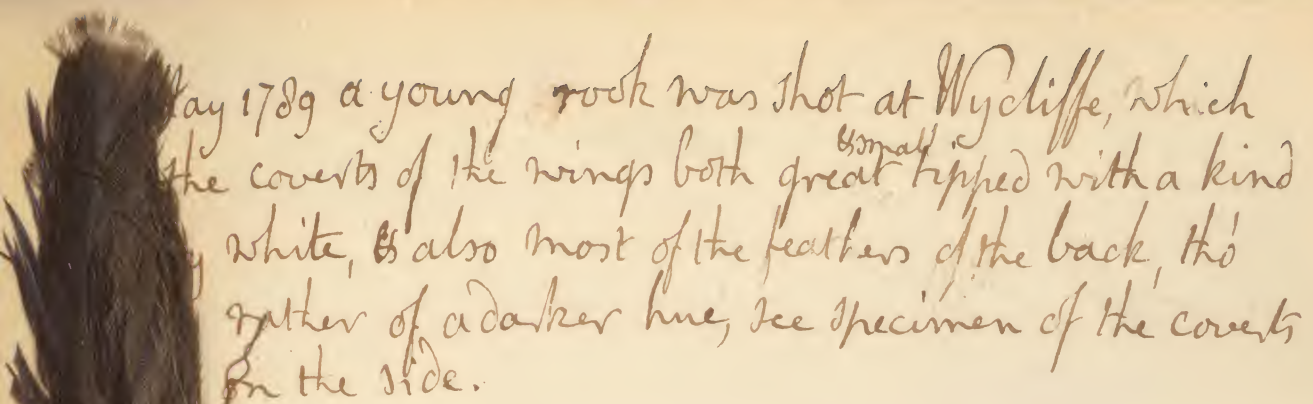 May 1789 a young rook was shot at Wycliffe, which
the coverts of the wings both great & small tipped with a kind
white, & also most of the feathers of the back, tho'
rather of a darker hue, see specimen of the coverts
on the side.